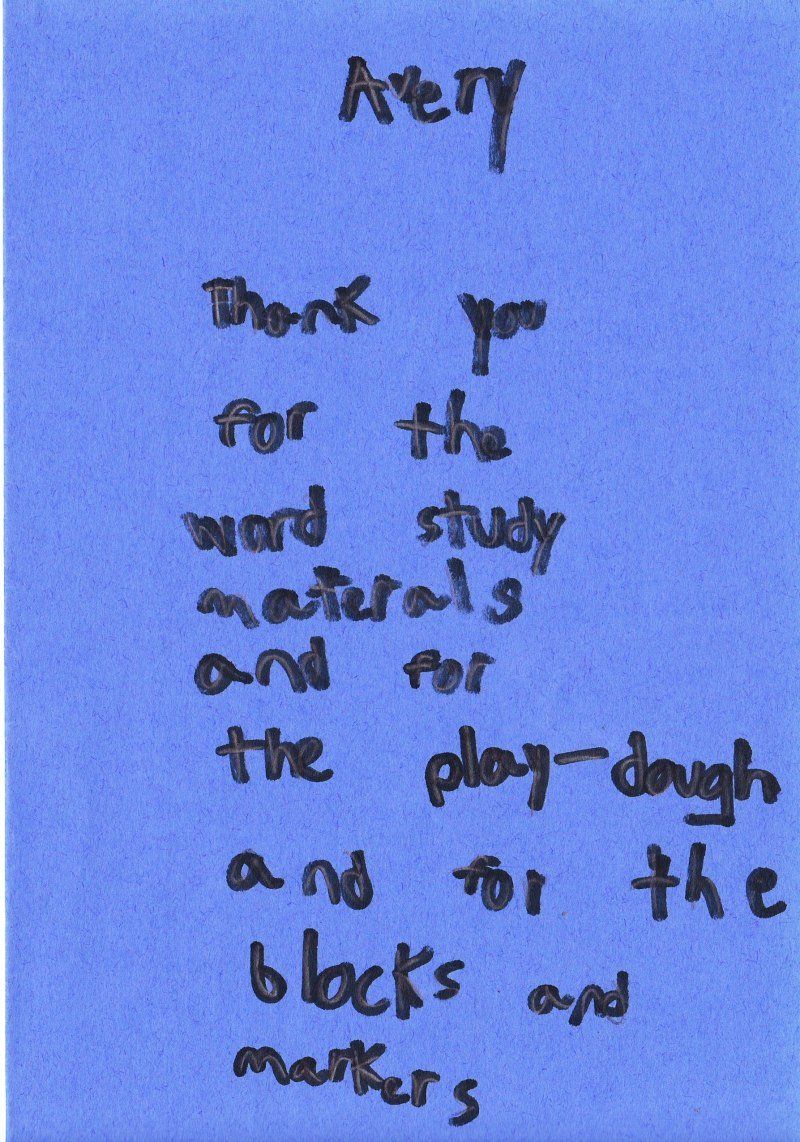 Avery
Thank you
for the
word study
materals
and for
the play-dough
and for the
blocks and
markers